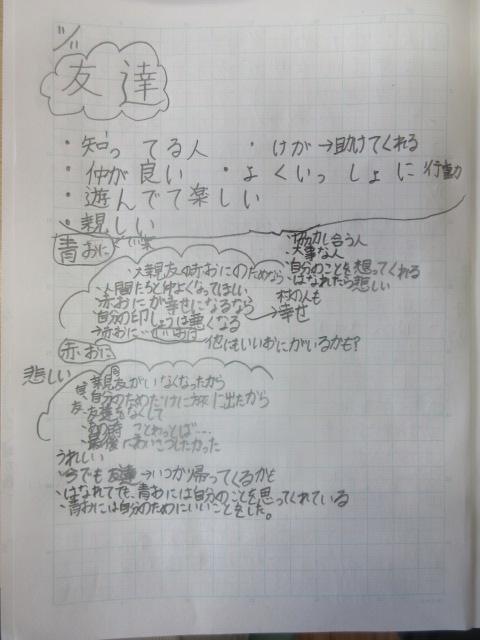 友達
・知ってる人 ・けが→助けてくれる
・仲が良い ・よくいっしょに行動
・遊んでて楽しい
・親しい
青おに
・協力し合う人
・大事な人
・大親友の赤おにのためなら
・自分のことを想ってくれる
・人間たちと仲よくなってほしい
・はなれたら悲しい
・赤おにが幸せになるなら
村の人も
自分の印しょうは悪くなる
→幸せ
→赤おに
他にもいいおにがいるかも?
赤おに
悲しい
・親友がいなくなったから
・自分のためだけに旅に出たから
・友達をなくして
・あの時 ことわっとけば……
・最後に
うれしい
・今でも友達→いつか帰ってくるかも
・はなれてでも、青おには自分のことを思ってくれている
・青おには自分のためにいいことをした。